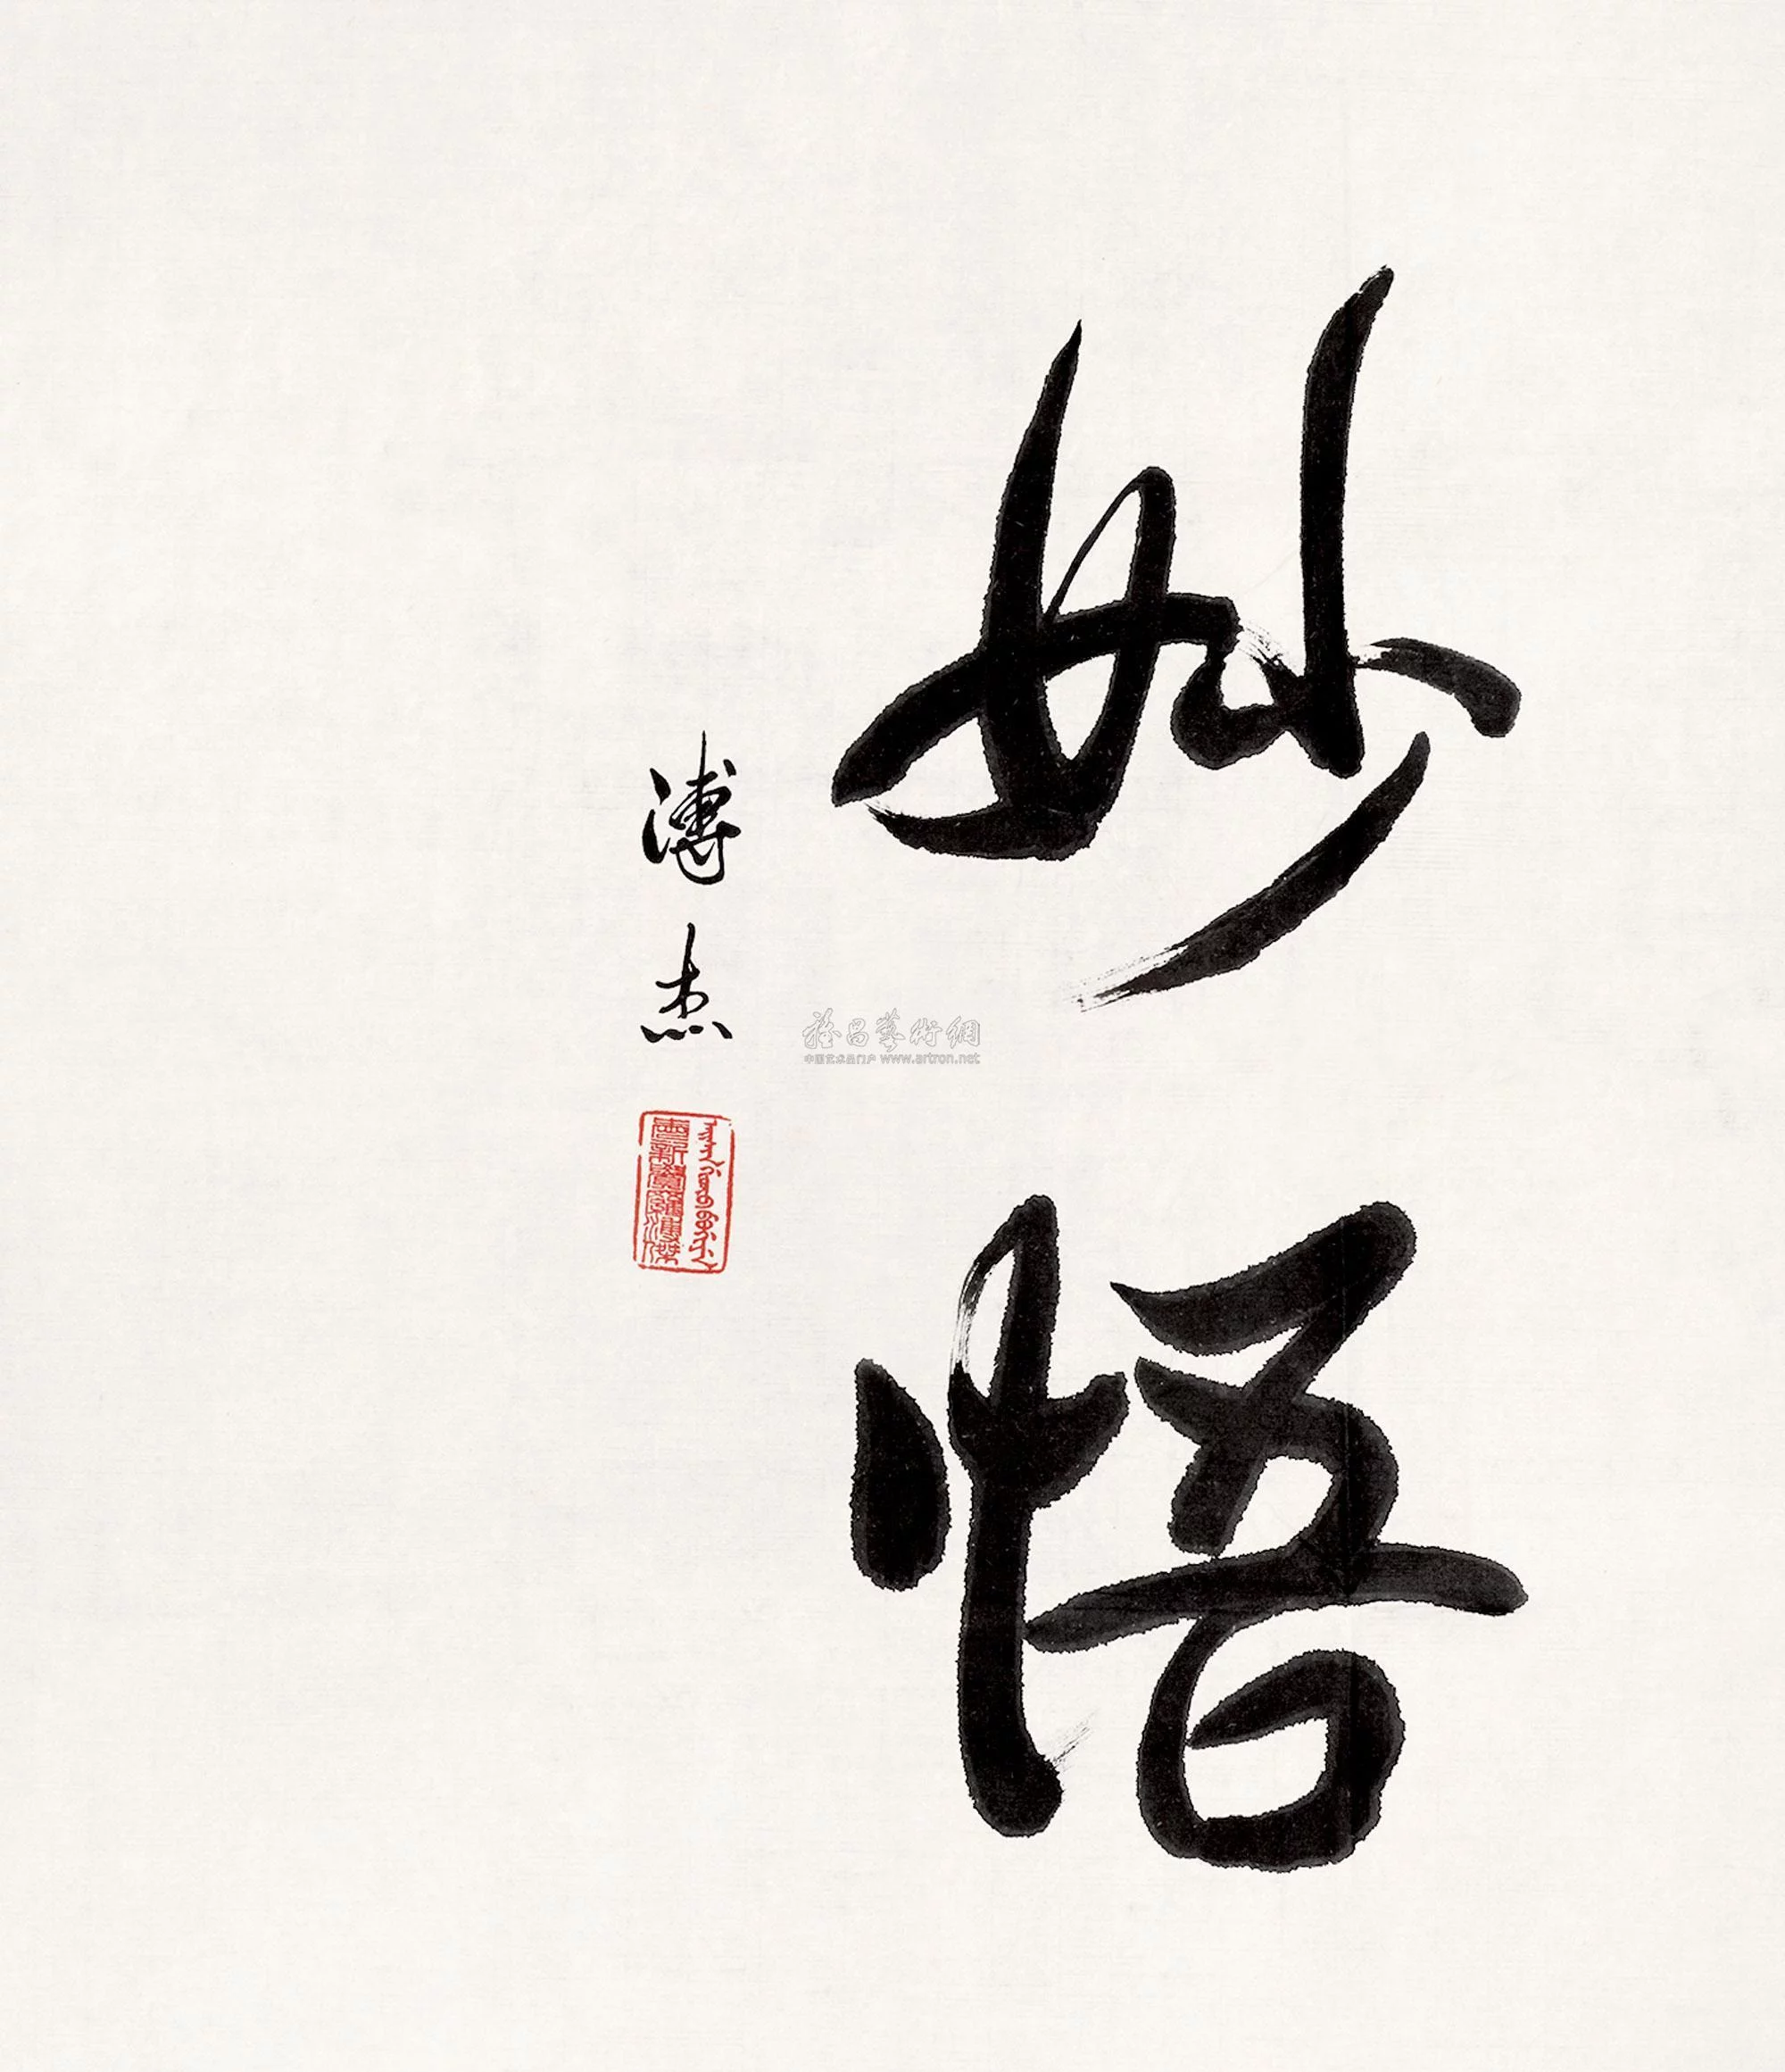 妙悟
溥杰
雅昌藝術網
中国艺术品门户 www.artron.net